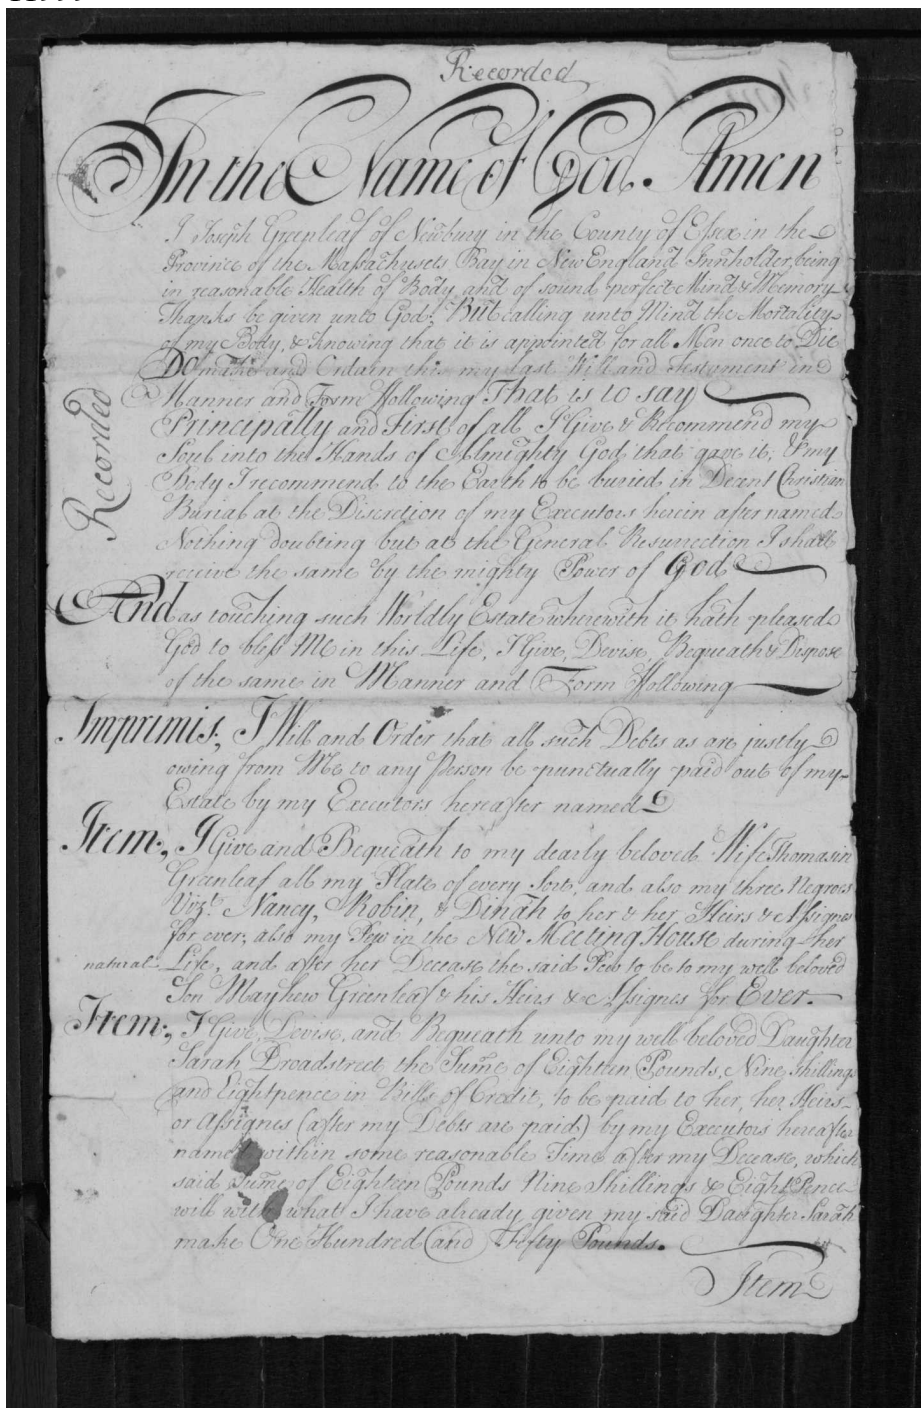 Recorded
In the Name of God. Amen
I Joseph Greenleaf of Newbury in the County of Essex in the
Province of the Massachusets Bay in New England Innholder, being
in reasonable Health of Body, and of sound perfect Mind & Memory
Thanks be given unto God: But calling unto Mind the Mortality
of my Body, & knowing that it is appointed for all Men once to Die
Do make and Ordain this my last Will and Testament in
Manner and Form Following That is to say
Recorded
Principally and First of all I Give & Recommend my
Soul into the Hands of Almighty God that gave it, & my
Body I recommend to the Earth to be buried in Decent Christian
Burial at the Discretion of my Executors herein after named
Nothing doubting but at the General Resurrection I shall
receive the same by the mighty Power of God
And as touching such Worldly Estate wherewith it hath pleased
God to bless Me in this Life, I Give, Devise, Bequeath & Dispose
of the same in Manner and Form Following
Imprimis, I Will and Order that all such Debts as are justly
owing from Me to any Person be punctually paid out of my
Estate by my Executors hereafter named
Item, I Give and Bequeath to my dearly beloved Wife Thomasin
Greenleaf all my Plate of every Sort, and also my three Negroes
Vizt. Nancy, Robin, & Dinah to her & her Heirs & Assignes
for ever; also my Pew in the New Meeting House during her
natural Life, and after her Decease the said Pew to be to my well beloved
Son Mayhew Greenleaf & his Heirs & Assignes for Ever.
Item, I Give, Devise, and Bequeath unto my well beloved Daughter
Sarah Broadstreet the Sume of Eighteen Pounds, Nine shillings
and Eightpence in Bills of Credit, to be paid to her, her Heirs
or Assignes (after my Debts are paid) by my Executors hereafter
named within some reasonable Time after my Decease, which
said Sume of Eighteen Pounds Nine Shillings & Eight Pence
will with what I have already given my said Daughter Sarah
make One Hundred and Fifty Pounds.
Item